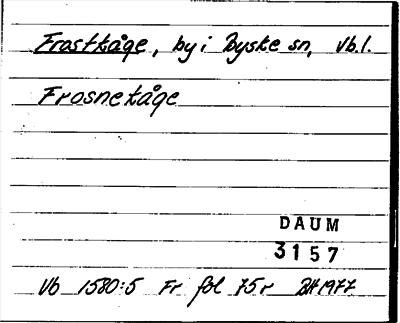 Frostkåge, by i Byske sn, Vb.l.
Frosnekåge
DAUM
3157
Vb 1580:5 Fr fol 75r BH 1977